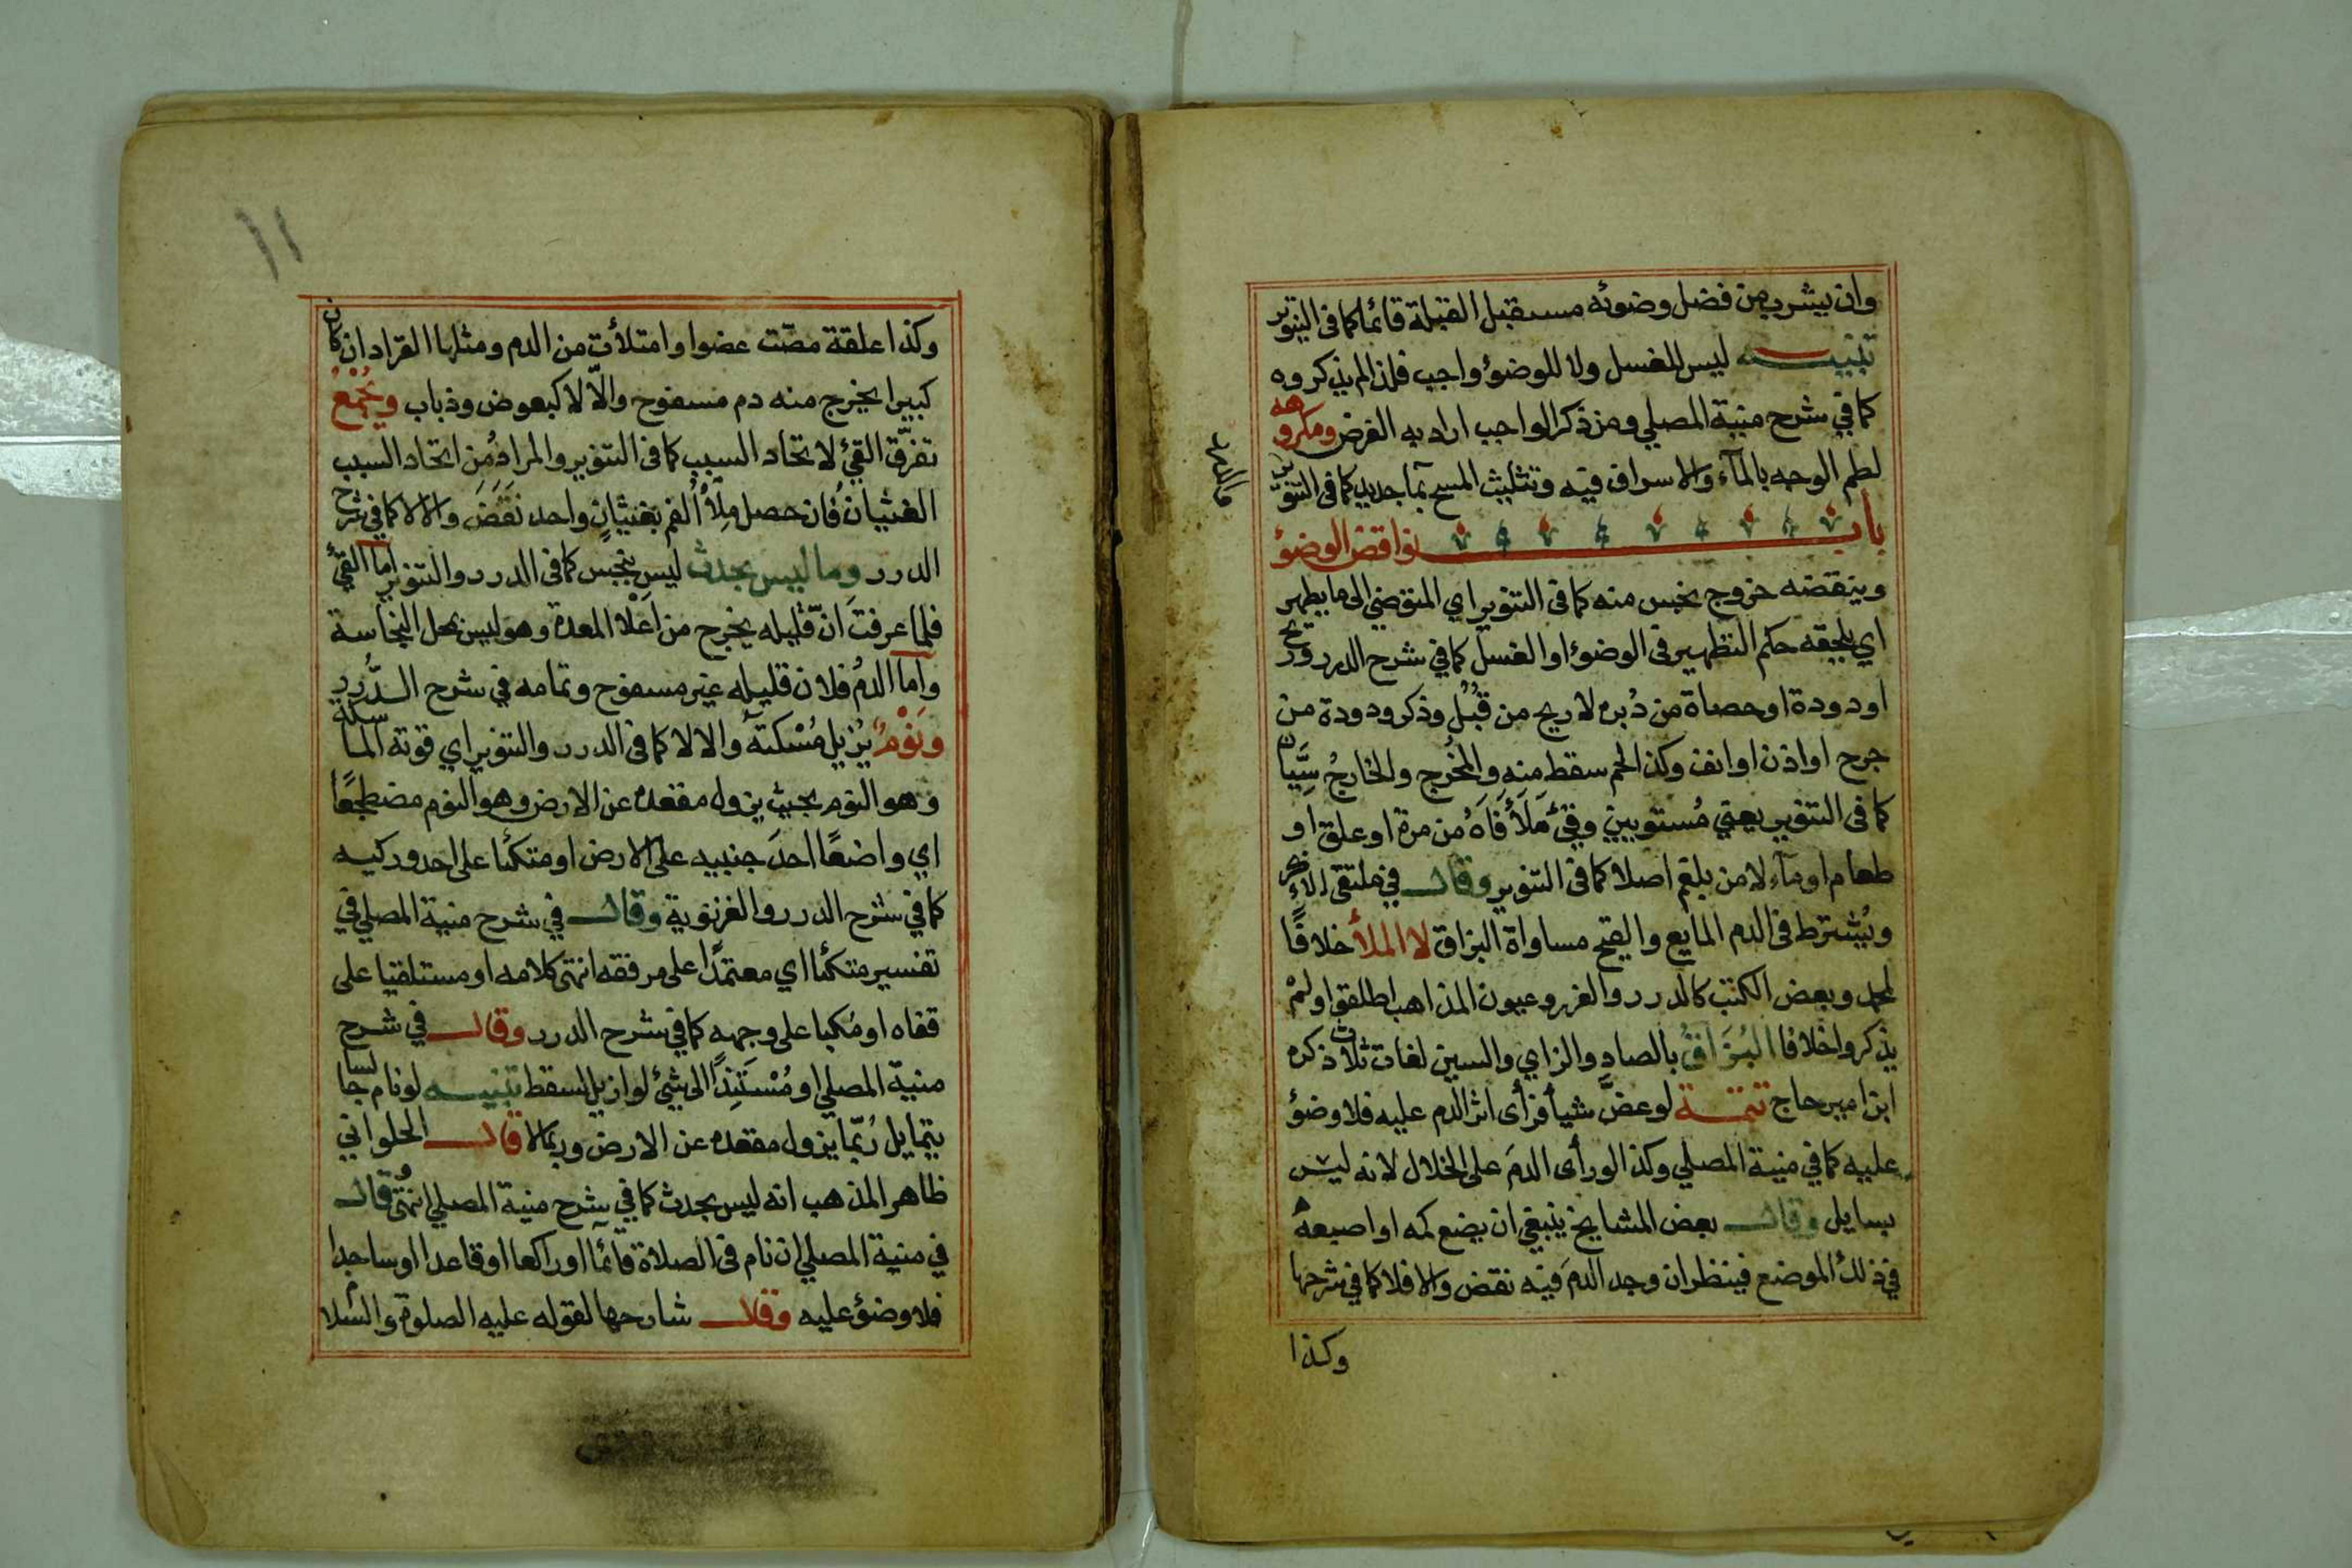 وان يشرب من فضل وضوئه مستقبل القبلة قائما كما فى التنوير
تنبيه ليس للغسل ولا للوضوء واجب فلذا لم يذكروه
كما في شرح منية المصلي ومن ذكر الواجب اراد به الفرض ومكروهه
لطم الوجه بالمآء والاسراف فيه وتثليث المسح بمآ جديد كما فى التنوير
باب نواقض الوضوء
وينقضه خروج نجس منه كما فى التنوير اي المتوضئ الى ما يطهر
اي يلحقه حكم التطهير فى الوضوء او الغسل كما في شرح الدرر وريح
او دودة او حصاة من دُبره لا ريح من قُبُل وذكر ودودة من
جرح او اذن او انف وكذا لحم سقط منه والمُخْرج والخارجُ سِيَّان
كما فى التنوير يعني مُستويين وقئ مَلَأَ فَاهُ من مرة او علق او
طعام او مآء لا من بلغم اصلا كما فى التنوير وقال في ملتقى الابحر
ويُشترط فى الدم المايع والقيح مساواة البزاق لا الملأ خلافًا
لمحمد وبعض الكتب كالدرر والغرر وعيون المذاهب اطلقوا ولمْ
يذكروا خلافا البُزَاقُ بالصادِ والزاي والسين لغات ثلاث ذكره
ابن امير حاج تتمة لو عضَّ شيأ فرأى اثر الدم عليه فلا وضوء
عليه كما في منية المصلي وكذا لو رأى الدمَ على الخلال لانه ليس
بسايل وقال بعض المشايخ ينبغي ان يضع كمه او اصبعه
في ذلك الموضع فينظر ان وجد الدمَ فيه نقض والا فلا كما في شرحها
وكذا
١١
وكذا علقة مصّت عضوا وامتلأت من الدم ومثلها القراد ان كان
كبيرا يخرج منه دم مسفوح والّا لا كبعوض وذباب ويُجْمَعُ
تفرّق القئ لاتحاد السبب كما فى التنوير والمراد من اتحاد السبب
الغثيان فان حصل مِلأُ الفم بغثيانٍ واحد نَقَضَ والا لا كما في شرح
الدرر وما ليس بحدث ليس بنجس كما فى الدرر والتنوير اما القئ
فلما عرفتَ انّ قليله يخرج من اعْلا المعدة وهو ليس محل النجاسة
واما الدمُ فلان قليله غير مسفوح وتمامه في شرح الدُّرر
ونَوْمٌ يُزيل مُسْكتَه والا لا كما فى الدرر والتنوير اي قوته الماسكة
وهو النوم بحيث يزول مقعده عن الارض وهو النوم مضطجعًا
اي واضعًا احدَ جنبيه على الارض او متكئا على احد وركيه
كما في شرح الدرر والغزنوية وقال في شرح منية المصلي في
تفسير متكئا اي معتمدًا على مرفقه انتهى كلامه او مستلقيا على
قفاه او مُكبا على وجهه كما في شرح الدرر وقال في شرح
منية المصلي او مُسْتَنِدًا الى شئ لو ازيل لسقط تنبيه لو نام جالسا
يتمايل رُبّما يزول مقعده عن الارض وربما لا قال الحلواني
ظاهر المذهب انه ليس بحدث كما في شرح منية المصلي انتهى قال
في منية المصلي ان نام فى الصلاة قآئما او راكعا او قاعدا او ساجدا
فلا وضوء عليه وقال شارحها لقوله عليه الصلوة والسّلام